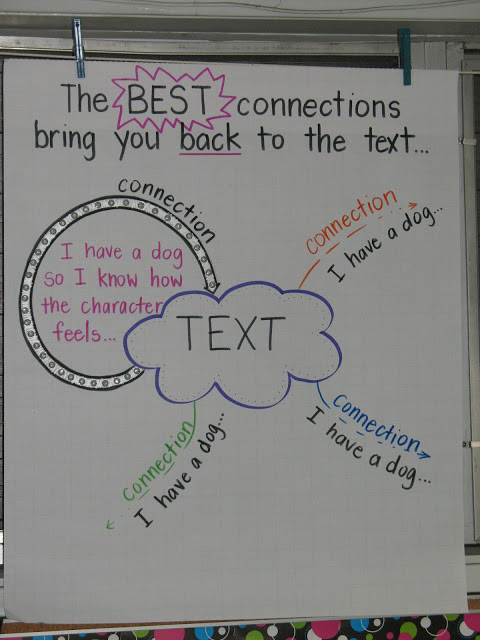 The BEST connections
bring you back to the text...
connection
I have a dog
so I know how
the character
feels...
TEXT
connection
I have a dog...
connection
I have a dog...
connection
I have a dog...